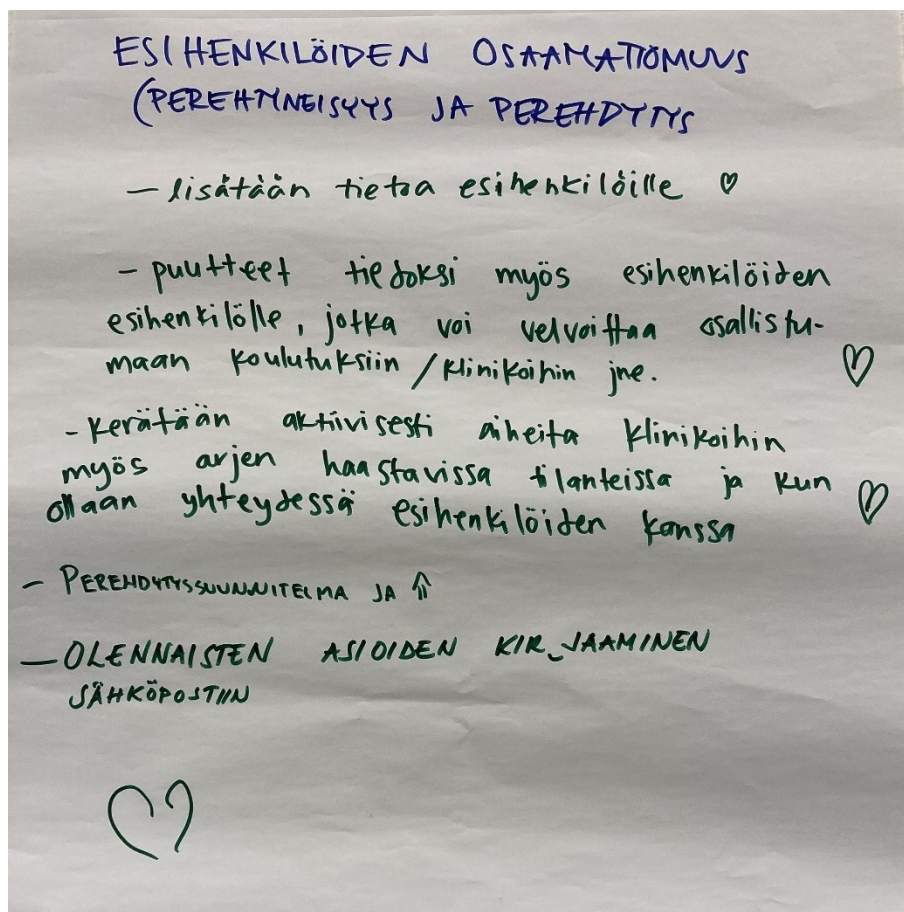 ESIHENKILÖIDEN OSAAMATTOMUUS
(PEREHTYNEISYYS JA PEREHDYTYS
- lisätään tietoa esihenkilöille ♡
- puutteet tiedoksi myös esihenkilöiden
esihenkilölle, jotka voi velvoittaa osallistu-
maan koulutuksiin / klinikoihin jne. ♡
- kerätään aktiivisesti aiheita klinikoihin
myös arjen haastavissa tilanteissa ja kun
ollaan yhteydessä esihenkilöiden kanssa ♡
- PEREHDYTYSSUUNNITELMA JA ⇑
- OLENNAISTEN ASIOIDEN KIRJAAMINEN
SÄHKÖPOSTIIN
♡